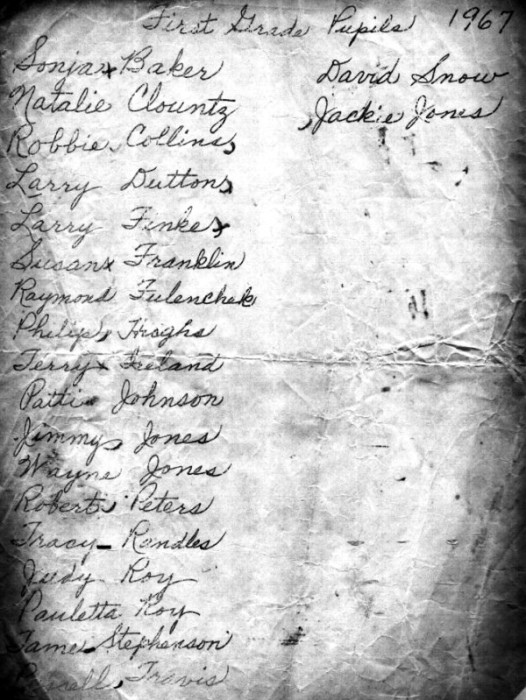 First Grade Pupils 1967
Sonja Baker
Natalie Clountz
Robbie Collins
Larry Dutton
Larry Finke
Susan Franklin
Raymond Fulenchek
Philip Hroghs
Terry Ireland
Pattie Johnson
Jimmy Jones
Wayne Jones
Robert Peters
Tracy Randles
Judy Roy
Pauletta Roy
James Stephenson
Travis
David Snow
Jackie Jones